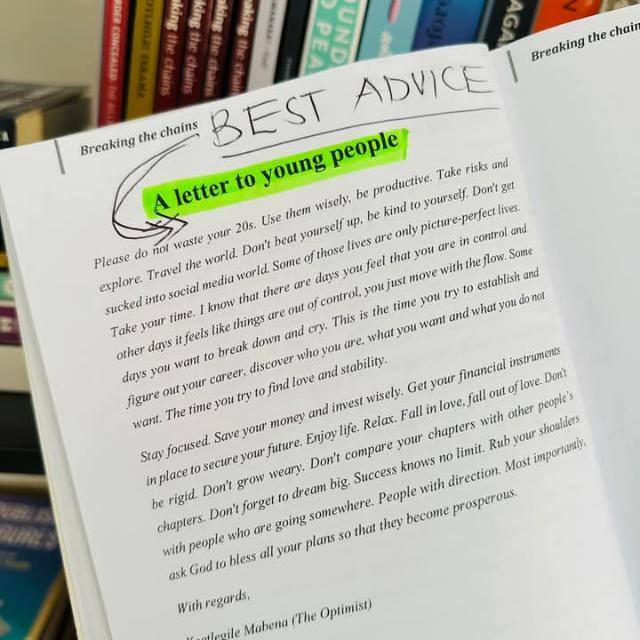 Breaking the chains
BEST ADVICE
A letter to young people
Please do not waste your 20s. Use them wisely, be productive. Take risks and
explore. Travel the world. Don't beat yourself up, be kind to yourself. Don't get
sucked into social media world. Some of those lives are only picture-perfect lives.
Take your time. I know that there are days you feel that you are in control and
other days it feels like things are out of control, you just move with the flow. Some
days you want to break down and cry. This is the time you try to establish and
figure out your career, discover who you are, what you want and what you do not
want. The time you try to find love and stability.
Stay focused. Save your money and invest wisely. Get your financial instruments
in place to secure your future. Enjoy life. Relax. Fall in love, fall out of love. Don't
be rigid. Don't grow weary. Don't compare your chapters with other people's
chapters. Don't forget to dream big. Success knows no limit. Rub your shoulders
with people who are going somewhere. People with direction. Most importantly,
ask God to bless all your plans so that they become prosperous.
With regards,
Mabena (The Optimist)
Breaking the chain
king the chains
aking the chains